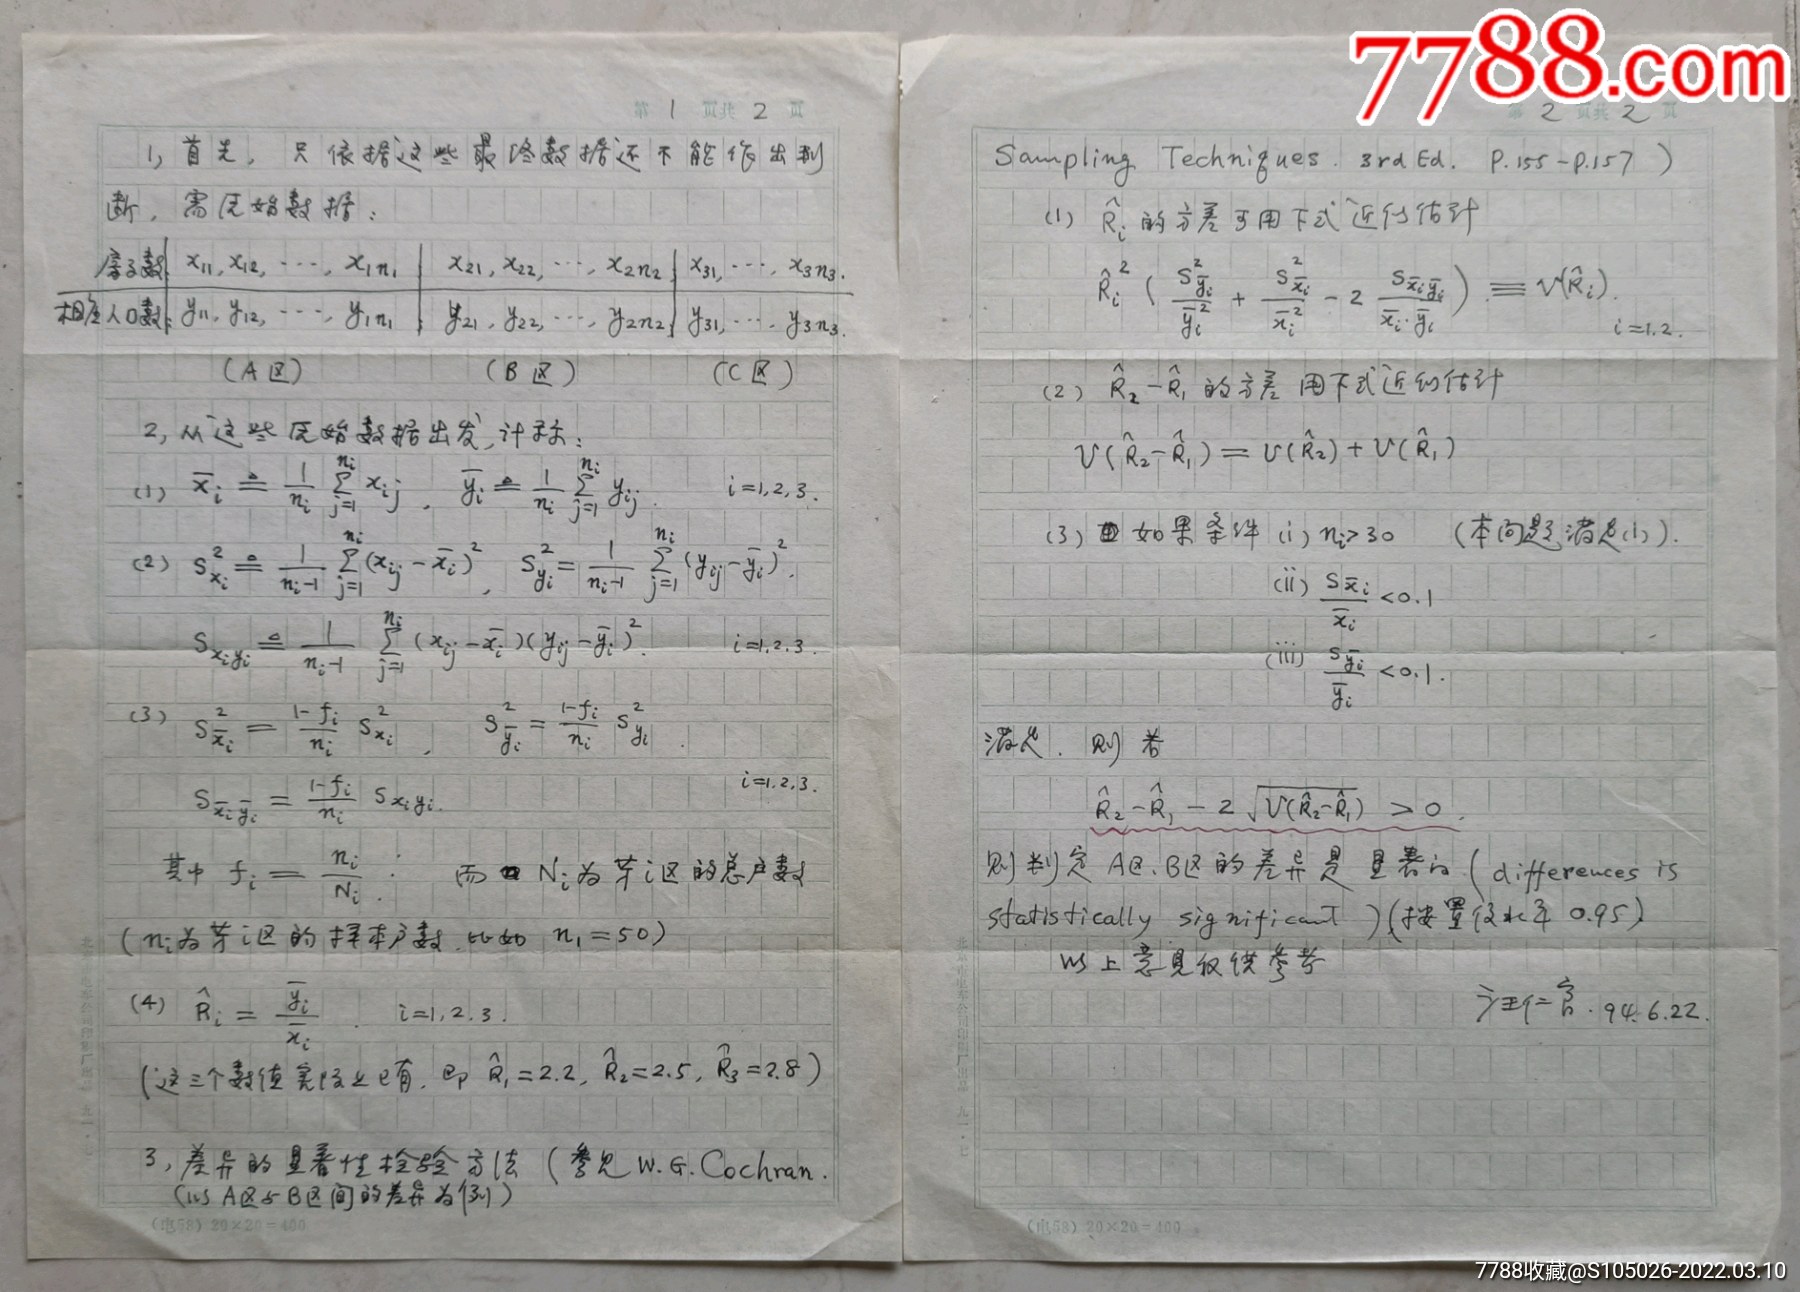 7788.com
第 1 页共 2 页
1, 首先, 只依据这些最终数据还不能作出判
断, 需原始数据:
房子数 x₁₁, x₁₂, ⋯, x₁n₁ | x₂₁, x₂₂, ⋯, x₂n₂ | x₃₁, ⋯, x₃n₃.
相应人口数 y₁₁, y₁₂, ⋯, y₁n₁ | y₂₁, y₂₂, ⋯, y₂n₂ | y₃₁, ⋯, y₃n₃.
(A区) (B区) (C区)
2, 从这些原始数据出发, 计算:
(1) x̄ᵢ ≙ 1/nᵢ Σ(j=1→nᵢ) xᵢⱼ, ȳᵢ ≙ 1/nᵢ Σ(j=1→nᵢ) yᵢⱼ. i=1,2,3.
(2) S²xᵢ ≙ 1/(nᵢ-1) Σ(j=1→nᵢ) (xᵢⱼ-x̄ᵢ)², S²yᵢ = 1/(nᵢ-1) Σ(j=1→nᵢ) (yᵢⱼ-ȳᵢ)².
Sxᵢyᵢ ≙ 1/(nᵢ-1) Σ(j=1→nᵢ) (xᵢⱼ-x̄ᵢ)(yᵢⱼ-ȳᵢ)². i=1,2,3.
(3) S²x̄ᵢ = (1-fᵢ)/nᵢ S²xᵢ, S²ȳᵢ = (1-fᵢ)/nᵢ S²yᵢ.
i=1,2,3.
Sx̄ᵢȳᵢ = (1-fᵢ)/nᵢ Sxᵢyᵢ.
其中 fᵢ = nᵢ/Nᵢ; 而 Nᵢ为第i区的总户数
(nᵢ为第i区的样本户数, 比如 n₁=50)
(4) R̂ᵢ = ȳᵢ/x̄ᵢ. i=1,2,3.
(这三个数值实际上已有, 即 R̂₁=2.2, R̂₂=2.5, R̂₃=2.8)
3, 差异的显著性检验方法 (参见 W.G.Cochran.
(以A区与B区间的差异为例)
(电58) 20×20=400
第 2 页共 2 页
Sampling Techniques. 3rd Ed. P.155-P.157)
(1) R̂ᵢ的方差可用下式近似估计
R̂ᵢ² (S²ȳᵢ/ȳᵢ² + S²x̄ᵢ/x̄ᵢ² - 2 Sx̄ᵢȳᵢ/x̄ᵢ·ȳᵢ) ≡ V(R̂ᵢ).
i=1,2.
(2) R̂₂-R̂₁的方差用下式近似估计
V(R̂₂-R̂₁) = V(R̂₂)+V(R̂₁)
(3) 如果条件 (i) nᵢ>30 (本问题满足(i)).
(ii) Sx̄ᵢ/x̄ᵢ <0.1
(iii) Sȳᵢ/ȳᵢ <0.1.
满足, 则若
R̂₂-R̂₁-2√V(R̂₂-R̂₁) >0.
则判定A区、B区的差异是显著的 (differences is
statistically significant) (按置信水平 0.95)
以上意见仅供参考
汪仁官. 94.6.22.
(电58) 20×20=400
7788收藏@S105026-2022.03.10